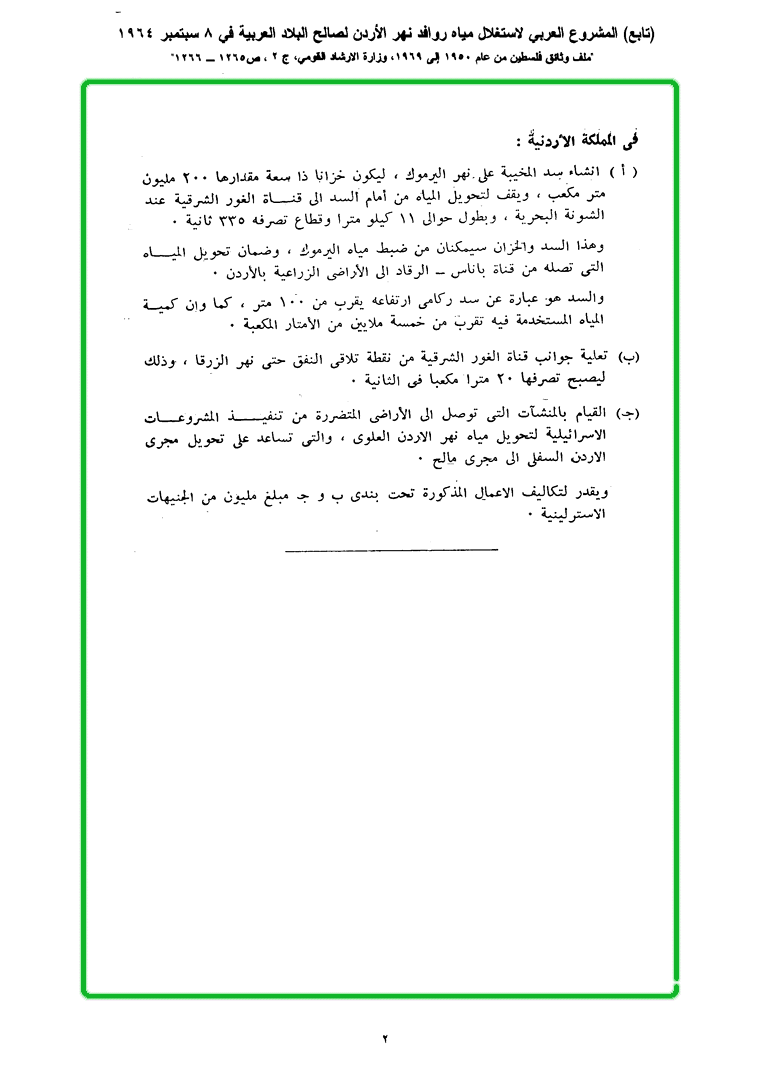 (تابع) المشروع العربي لاستغلال مياه روافد نهر الأردن لصالح البلاد العربية في ٨ سبتمبر ١٩٦٤
"ملف وثائق فلسطين من عام ١٩٥٠ إلى ١٩٦٩، وزارة الارشاد القومي، ج ٢ ، ص١٢٦٥ ــ ١٢٦٦"
فى المملكة الأردنية :
( أ ) انشاء سد المخيبة على نهر اليرموك ، ليكون خزانا ذا سعة مقدارها ٢٠٠ مليون
متر مكعب ، ويقف لتحويل المياه من أمام السد الى قنــاة الغور الشرقية عند
الشونة البحرية ، وبطول حوالى ١١ كيلو مترا وقطاع تصرفه ٣٣٥ ثانية ٠
وهذا السد والخزان سيمكنان من ضبط مياه اليرموك ، وضمان تحويل الميــاه
التى تصله من قناة باناس ــ الرقاد الى الأراضى الزراعية بالأردن ٠
والسد هو عبارة عن سد ركامى ارتفاعه يقرب من ١٠٠ متر ، كما وإن كميــة
المياه المستخدمة فيه تقرب من خمسة ملايين من الأمتار المكعبة ٠
(ب) تعلية جوانب قناة الغور الشرقية من نقطة تلاقى النفق حتى نهر الزرقا ، وذلك
ليصبح تصرفها ٢٠ مترا مكعبا فى الثانية ٠
(جـ) القيام بالمنشآت التى توصل الى الأراضى المتضررة من تنفيــذ المشروعــات
الاسرائيلية لتحويل مياه نهر الاردن العلوى ، والتى تساعد على تحويل مجرى
الاردن السفلى الى مجرى مالح ٠
ويقدر لتكاليف الاعمال المذكورة تحت بندى ب و جـ مبلغ مليون من الجنيهات
الاسترلينية ٠
٢